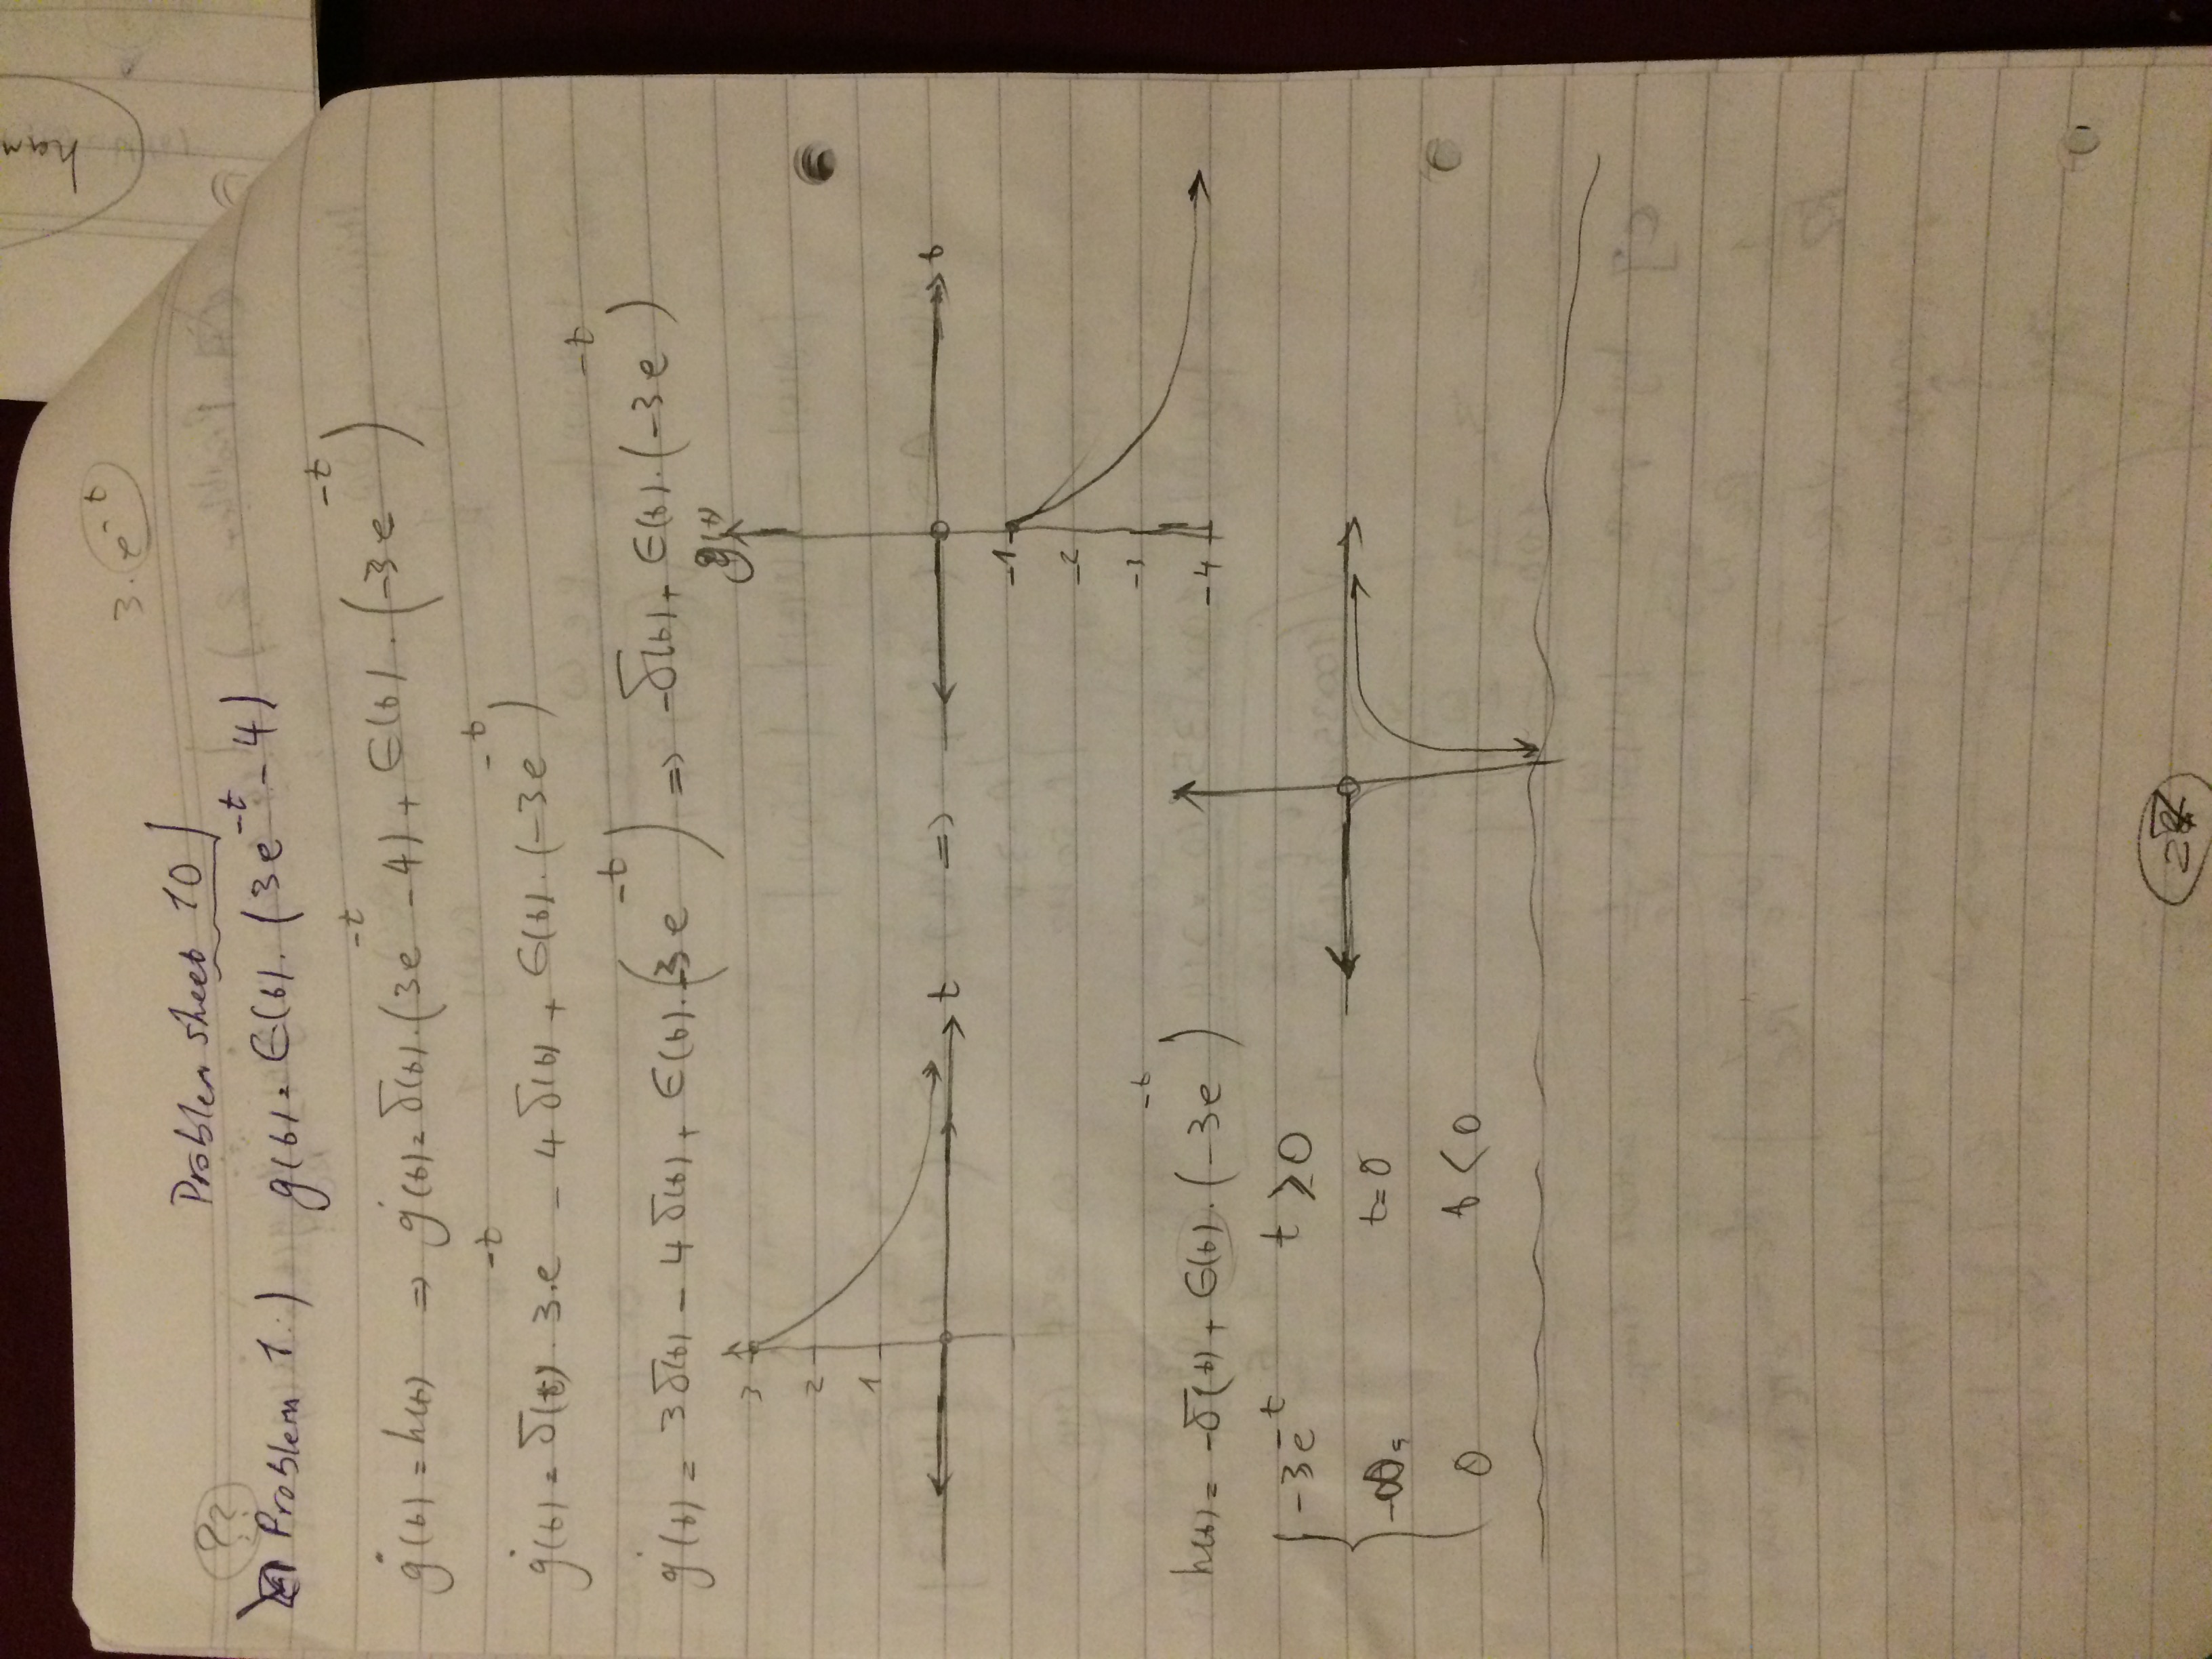 ham
3. e^-t
Problem sheet 10
??
Problem 1.) g(t) = ϵ(t). (3e^-t - 4)
ġ(t) = h(t) ⇒ ġ(t) = δ(t).(3e^-t - 4) + ϵ(t) . (-3e^-t)
ġ(t) = δ(t) . 3.e^-t - 4 δ(t) + ϵ(t) . (-3e^-t)
ġ(t) = 3δ(t) - 4 δ(t) + ϵ(t).(-3e^-t) ⇒ -δ(t) + ϵ(t).(-3e^-t)
g(t)
3
2
1
t ⇒ t
-1
-2
-3
-4
h(t) = -δ(t) + ϵ(t). (-3e^-t)
-3e^-t t ≥ 0
-∞, t = 0
0 t < 0